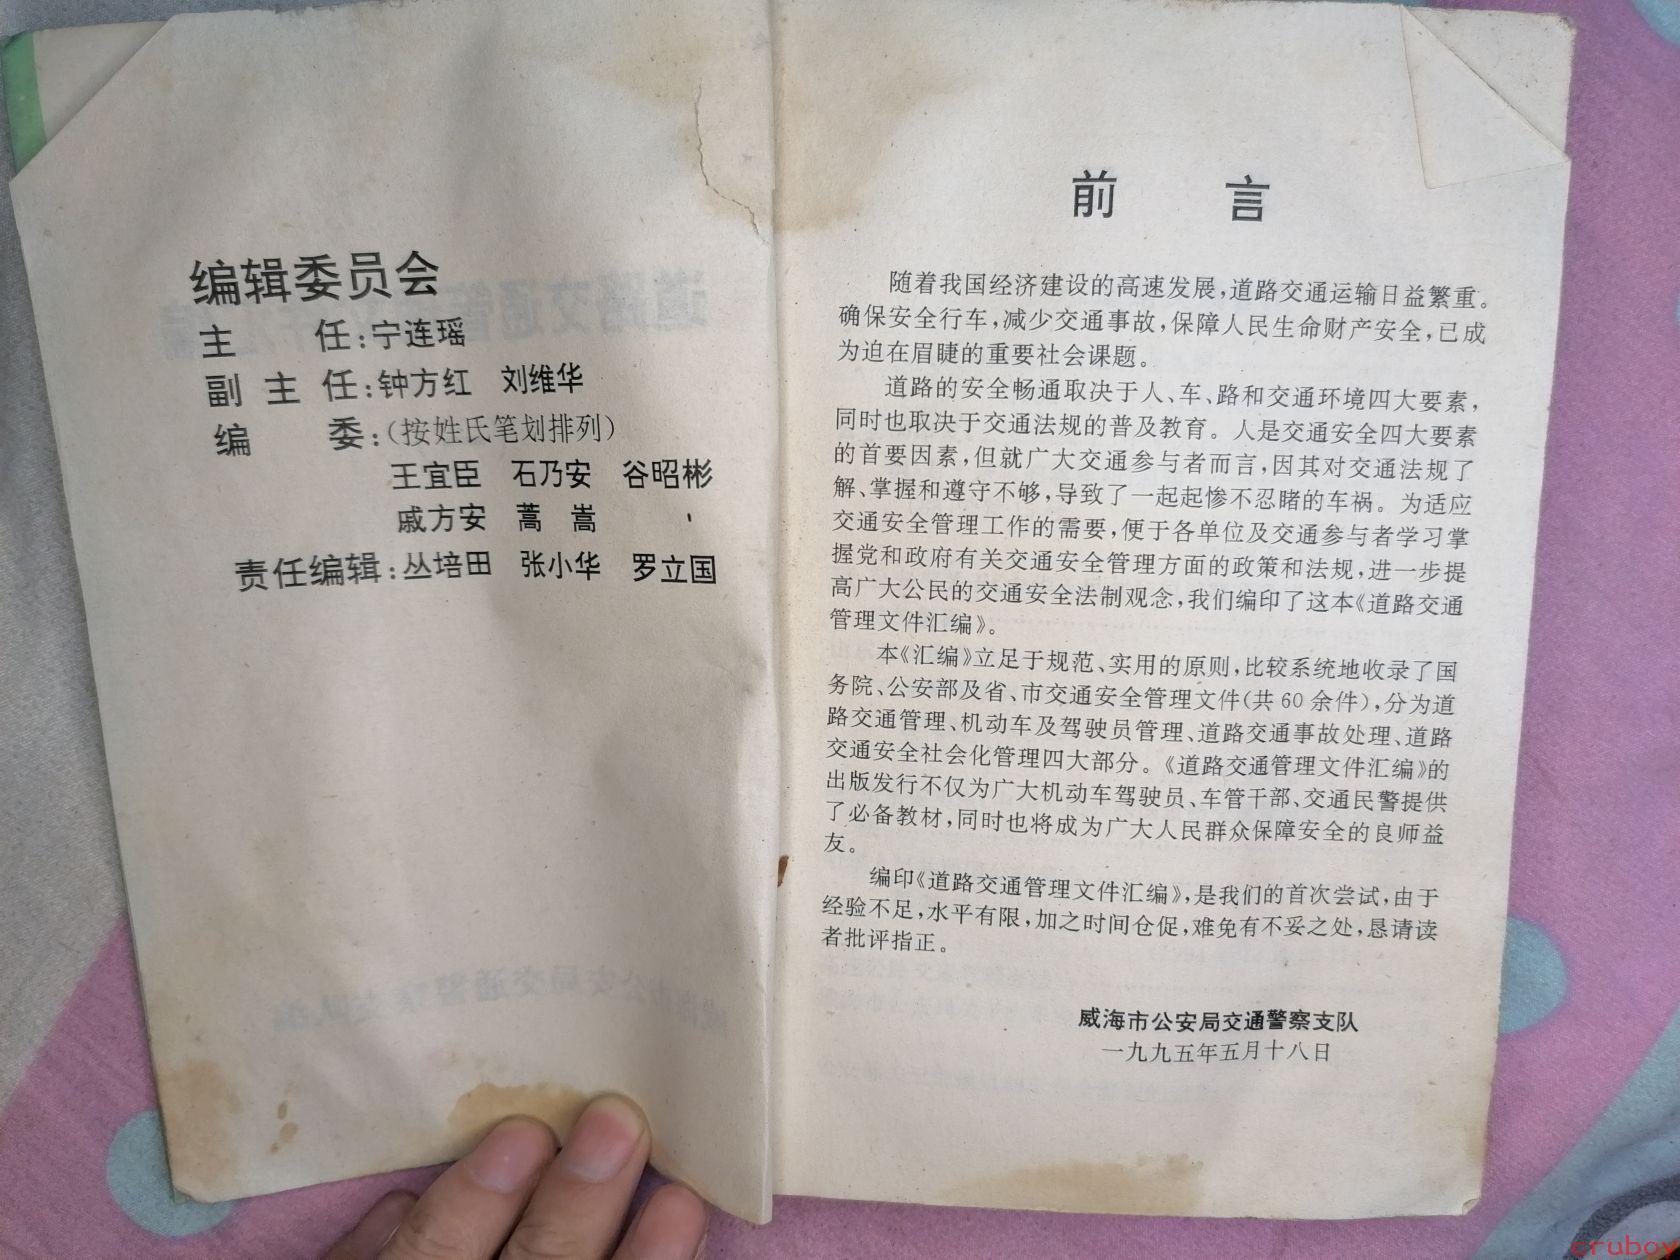 编辑委员会
主 任:宁连瑶
副 主 任:钟方红 刘维华
编 委:(按姓氏笔划排列)
王宜臣 石乃安 谷昭彬
戚方安 蒿 嵩
责任编辑:丛培田 张小华 罗立国
前 言
随着我国经济建设的高速发展,道路交通运输日益繁重。
确保安全行车,减少交通事故,保障人民生命财产安全,已成
为迫在眉睫的重要社会课题。
道路的安全畅通取决于人、车、路和交通环境四大要素,
同时也取决于交通法规的普及教育。人是交通安全四大要素
的首要因素,但就广大交通参与者而言,因其对交通法规了
解、掌握和遵守不够,导致了一起起惨不忍睹的车祸。为适应
交通安全管理工作的需要,便于各单位及交通参与者学习掌
握党和政府有关交通安全管理方面的政策和法规,进一步提
高广大公民的交通安全法制观念,我们编印了这本《道路交通
管理文件汇编》。
本《汇编》立足于规范、实用的原则,比较系统地收录了国
务院、公安部及省、市交通安全管理文件(共60余件),分为道
路交通管理、机动车及驾驶员管理、道路交通事故处理、道路
交通安全社会化管理四大部分。《道路交通管理文件汇编》的
出版发行不仅为广大机动车驾驶员、车管干部、交通民警提供
了必备教材,同时也将成为广大人民群众保障安全的良师益
友。
编印《道路交通管理文件汇编》,是我们的首次尝试,由于
经验不足,水平有限,加之时间仓促,难免有不妥之处,恳请读
者批评指正。
威海市公安局交通警察支队
一九九五年五月十八日
cruboy